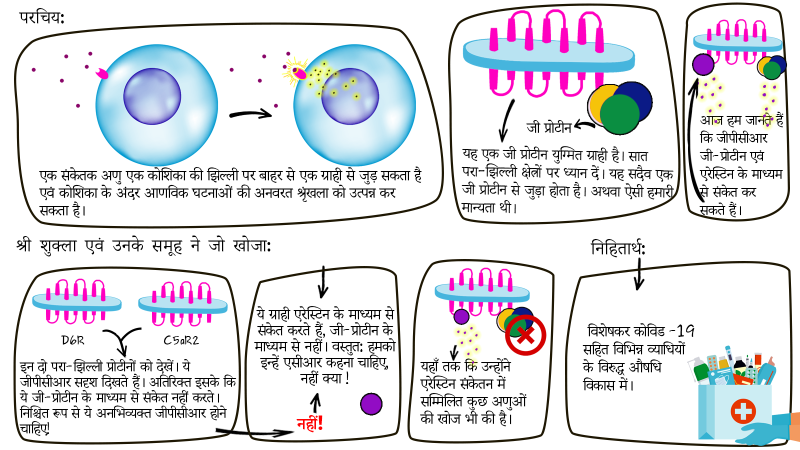 परचिय:
एक संकेतक अणु एक कोशिका की झिल्ली पर बाहर से एक ग्राही से जुड़ सकता है
एवं कोशिका के अंदर आणविक घटनाओं की अनवरत श्रृंखला को उत्पन्न कर
सकता है।
जी प्रोटीन
यह एक जी प्रोटीन युग्मित ग्राही है। सात
परा-झिल्ली क्षेत्रों पर ध्यान दें। यह सदैव एक
जी प्रोटीन से जुड़ा होता है। अथवा ऐसी हमारी
मान्यता थी।
आज हम जानते हैं
कि जीपीसीआर
जी-प्रोटीन एवं
एरेस्टिन के माध्यम
से संकेत कर
सकते हैं।
श्री शुक्ला एवं उनके समूह ने जो खोजा:
D6R
C5aR2
इन दो परा-झिल्ली प्रोटीनों को देखें। ये
जीपीसीआर सदृश दिखते हैं। अतिरिक्त इसके कि
ये जी-प्रोटीन के माध्यम से संकेत नहीं करते।
निश्चित रूप से ये अनभिव्यक्त जीपीसीआर होने
चाहिए!
ये ग्राही एरेस्टिन के माध्यम से
संकेत करते हैं, जी-प्रोटीन के
माध्यम से नहीं। वस्तुत: हमको
इन्हें एसीआर कहना चाहिए,
नहीं क्या !
नहीं!
यहाँ तक कि उन्होंने
एरेस्टिन संकेतन में
सम्मिलित कुछ अणुओं
की खोज भी की है।
निहितार्थ:
विशेषकर कोविड -19
सहित विभिन्न व्याधियों
के विरुद्ध औषधि
विकास में।